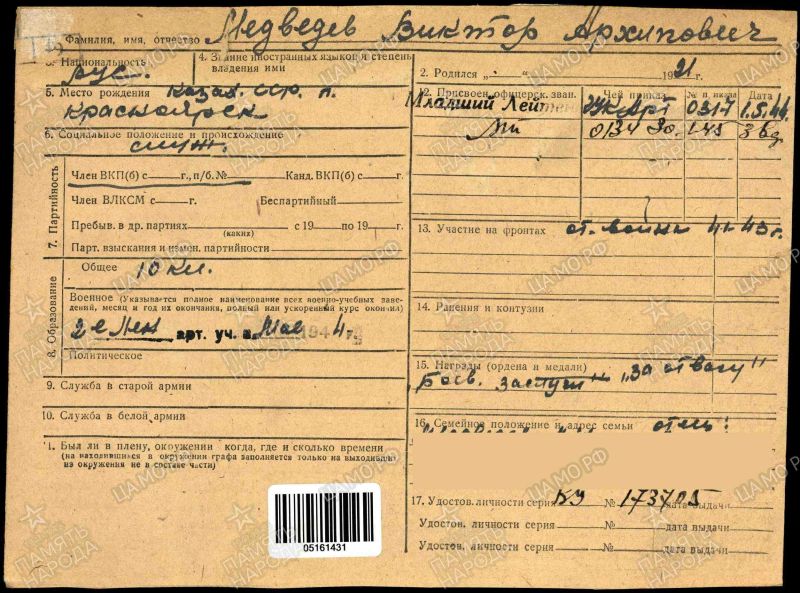 Фамилия, имя, отчество Медведев Виктор Архипович
3. Национальность рус.
4. Знание иностранных языков и степень владения ими
5. Место рождения Казах. ССР. п.
Красноярск
6. Социальное положение и происхождение
служ.
7. Партийность
Член ВКП(б) с г., п/б. № Канд. ВКП(б) с г.
Член ВЛКСМ с г. Беспартийный
Пребыв. в др. партиях с 19 по 19 г.
(каких)
Парт. взыскания и измен. партийности
8. Образование
Общее 10 кл.
Военное (Указывается полное наименование всех военно-учебных заве-
дений, месяц и год их окончания, полный или ускоренный курс окончил)
2-е Лен арт. уч. в Мае 194 4
Политическое
9. Служба в старой армии
10. Служба в белой армии
1. Был ли в плену, окружении когда, где и сколько времени
(на находившихся в окружении графа заполняется только на выходивших
из окружения не в составе части)
05161431
2. Родился „ “ 1921 г.
2. Присвоен. офицерск. зван. Чей приказ № п. иказа Дата
Младший Лейтен Арт 0317 1.5.44
0134
13. Участие на фронтах от. война 41-43 г.
14. Ранения и контузии
15. Награды (ордена и медали)
Боев. заслуги" „За отвагу"
16. Семейное положение и адрес семьи отец:
17. Удостов. личности серия КУ № 173705 дата выдачи
Удостов. личности серия № дата выдачи
Удостов. личности серия № дата выдачи
ПАМЯТЬ НАРОДА
ЦАМО.РФ